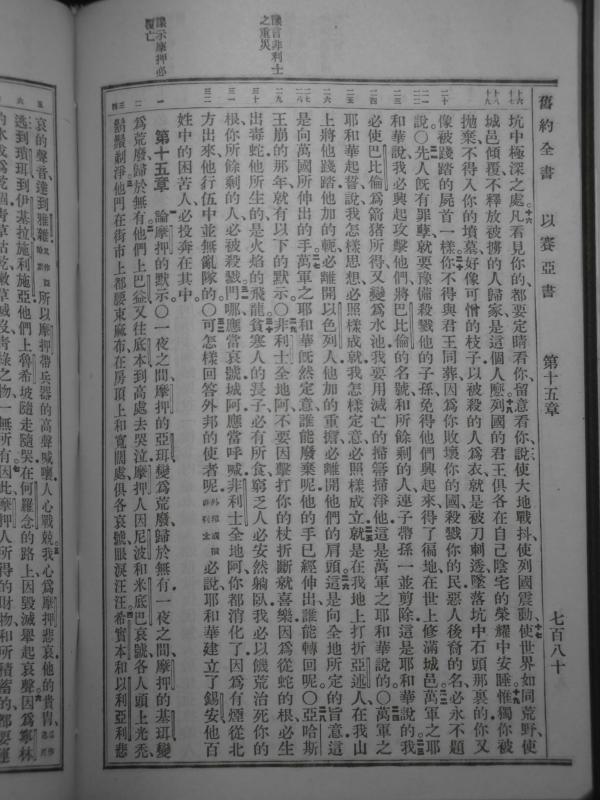 舊約全書 以賽亞書 第十五章 七百八十
坑中極深之處凡看見你的都要定睛看你留意看你說使大地戰抖使列國震動使世界如同荒野使
城邑傾覆不釋放被擄的人歸家是這個人麽列國的君王俱各在自己陰宅的榮耀中安睡惟獨你被
拋棄不得入你的墳墓好像可憎的枝子以被殺的人爲衣就是被刀刺透墜落坑中石頭那裏的你又
像被踐踏的屍首一樣你不得與君王同葬因爲你敗壞你的國殺戮你的民惡人後裔的名必永不題
說〇先人旣有罪孽就要豫備殺戮他的子孫免得他們興起來得了徧地在世上修滿城邑萬軍之耶
和華說我必興起攻擊他們將巴比倫的名號和所餘剩的人連子帶孫一並剪除這是耶和華說的我
必使巴比倫爲箭猪所得又變爲水池我要用滅亡的掃箒掃淨他這是萬軍之耶和華說的〇萬軍之
耶和華起誓說我怎樣思想必照樣成就我怎樣定意必照樣成立就是在我地上打折亞述人在我山
上將他踐踏他加的軛必離開以色列人他加的重擔必離開他們的肩頭這是向全地所定的旨意這
是向萬國所伸出的手萬軍之耶和華旣然定意誰能廢棄呢他的手已經伸出誰能轉回呢〇亞哈斯
王崩的那年就有以下的默示〇非利士全地阿不要因擊打你的杖折斷就喜樂因爲從蛇的根必生
出毒蛇他所生的是火焰的飛龍貧寒人的長子必有所食窮乏人必安然躺臥我必以饑荒治死你的
根你所餘剩的人必被殺戮門哪應當哀號城阿應當呼喊非利士全地阿你都消化了因爲有煙從北
方出來他行伍中並無亂隊的〇可怎樣回答外邦的使者呢外邦或指非利士必說耶和華建立了錫安他百
姓中的困苦人必投奔在其中
第十五章 論摩押的默示〇一夜之間摩押的亞珥變爲荒廢歸於無有一夜之間摩押的基珥變
爲荒廢歸於無有他們上巴益又往底本到高處去哭泣摩押人因尼波和米底巴哀號各人頭上光禿
鬍鬚剃淨他們在街市上都腰束麻布在房頂上和寬闊處俱各哀號眼淚汪汪希實本和以利亞利悲
讖言非利士之重災
讖示摩押必覆亡
哀的聲音達到雅雜所以摩押帶兵器的高聲喊嚷人心戰兢我心爲摩押悲哀他的貴冑
逃到瑣珥到伊基拉施利施亞他們上魯希坡隨走隨哭在何羅念的路上因毀滅舉起哀聲因爲寧林
的水成爲乾涸青草枯乾嫩草滅沒青綠之物一無所有因此摩押人所得的財物和所積蓄的都要運